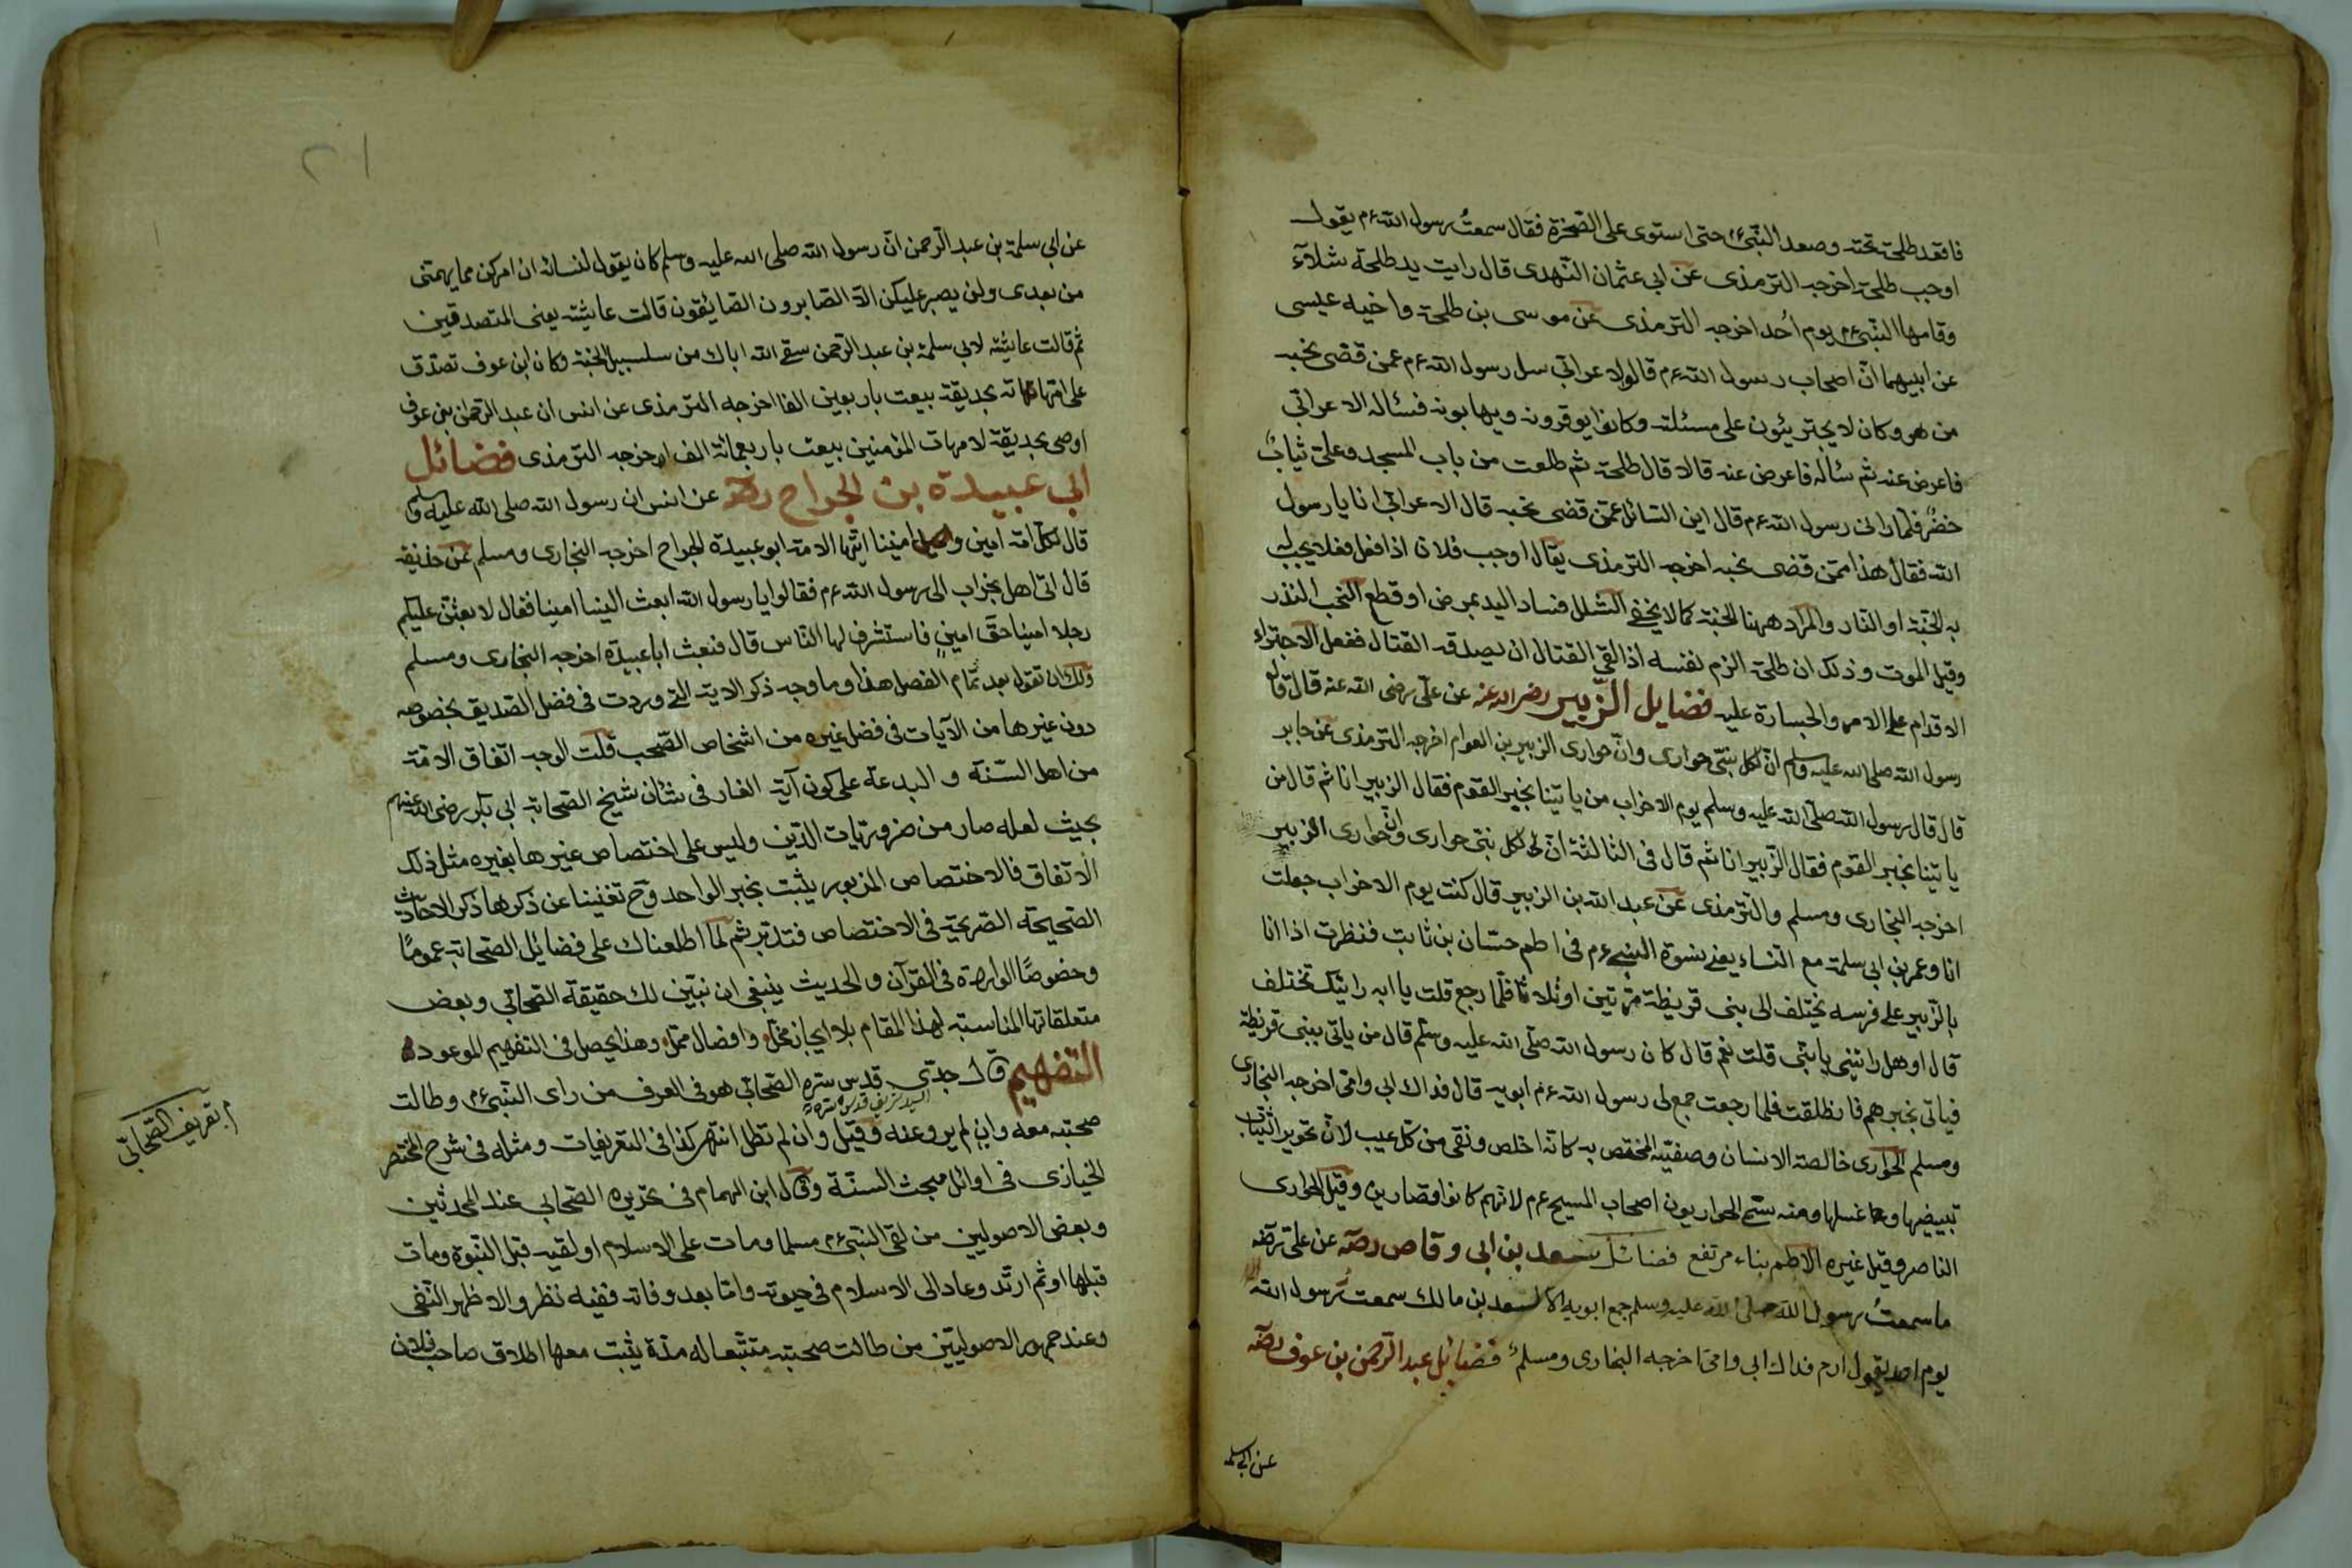 فاقعد طلحة تحته وصعد النبي ءم حتى استوى على الصخرة فقال سمعت رسول الله ءم يقول
اوجب طلحة اخرجه الترمذى عن ابى عثمان النهدى قال رايت يد طلحة شلآء
وقا بها النبي ءم يوم احد اخرجه الترمذى عن موسى بن طلحة واخيه عيسى
عن ابيهما ان اصحاب رسول الله ءم قالوا لاعرابي سل رسول الله ءم عمن قضى نحبه
من هو وكان لا يجترئون على مسئلته وكانوا يوقرونه ويهابونه فسئاله الاعرابي
فاعرض عنه ثم سئاله فاعرض عنه قالا قال طلحة ثم طلعت من باب المسجد وعلىّ ثياب
خضر فلما رانى رسول الله ءم قال اين السائل عمّن قضى نحبه قال الاعرابي انا يا رسول
الله فقال هذا ممن قضى نحبه اخرجه الترمذى يقال اوجب فلان اذا فعل فعلا يجب له
به الجنة او النار والمراد ههنا الجنة كما لا يخفى الشلل فساد اليد بمرض او قطع النحب النذر
وقيل الموت وذلك ان طلحة الزم نفسه اذا لقى القتال ان يصدقه القتال ففعل الاجتراء
الاقدام على الامر والجسارة عليه فضايل الزبير رضى الله عنه عن على رضى الله عنه قال قال
رسول الله صلى الله عليه وسلم ان لكل نبيّ حوارى وانّ حوارى الزبير بن العوام اخرجه الترمذى عن جابر
قال قال رسول الله صلى الله عليه وسلم يوم الاحزاب من ياتينا بخبر القوم فقال الزبير انا ثم قال من
ياتينا بخبر القوم فقال الزبير انا ثم قال فى الثالثة انّ لكل نبى حوارى وانّ حوارى الزبير
اخرجه البخارى ومسلم والترمذى عن عبد الله بن الزبير قال كنت يوم الاحزاب جعلت
انا وعمر بن ابى سلمة مع النساء يعنى نسوة النبي ءم فى اطم حسّان بن ثابت فنظرت اذا انا
بالزبير على فرسه يختلف الى بنى قريظة مرّتين او ثلاثا فلما رجع قلت يا ابه رايتك تختلف
قال اوهل رايتنى يا بنى قلت نعم قال كان رسول الله صلى الله عليه وسلم قال من ياتى بنى قريظة
فياتى بخبرهم فانطلقت فلما رجعت جمع لى رسول الله ءم ابويه قال فداك ابى وامى اخرجه البخارى
ومسلم الحوارى خالصة الانسان وصفيّه المختص به كانه اخلص ونقى من كل عيب لان تحوير الثياب
تبييضها وغسلها ومنه سمّى الحواريون اصحاب المسيح ءم لانهم كانوا قصارين وقيل الحوارى
الناصر وقيل غيره الاطم بناء مرتفع فضائل سعد بن ابى وقاص رضه عن على رضه
ما سمعت رسول الله صلى الله عليه وسلم جمع ابويه الا لسعد بن مالك سمعت رسول الله
يوم احد يقول ارم فداك ابى وامى اخرجه البخارى ومسلم فضائل عبد الرحمن بن عوف رضه
عن ابى سلمه
عن ابى سلمة بن عبد الرحمن انّ رسول الله صلى الله عليه وسلم كان يقول لنسائه ان امركن مما يهمّنى
من بعدى ولن يصبر عليكن الا الصابرون الصايقون قالت عايشة يعنى المتصدقين
ثم قالت عايشة لابى سلمة بن عبد الرحمن سقى الله اباك من سلسبيل الجنة وكان ابن عوف تصدّق
على امهاته بحديقة بيعت باربعين الفا اخرجه الترمذى عن انس ان عبد الرحمن بن عوف
اوصى بحديقة لامهات المؤمنين بيعت باربعمائة الف اخرجه الترمذى فضائل
ابى عبيدة بن الجراح رضه عن انس ان رسول الله صلى الله عليه وسلم
قال لكل امة امين وان اميننا ايتها الامة ابو عبيدة الجراح اخرجه البخارى ومسلم عن حذيفة
قال اتى اهل نجران الى رسول الله ءم فقالوا يا رسول الله ابعث الينا امينا فقال لا بعثنّ عليكم
رجلا امينا حقّ امين فاستشرف لها الناس قال فبعث ابا عبيدة اخرجه البخارى ومسلم
ولك ان تقول بعد تمام الفصل هذا وما وجه ذكر الاية التى وردت فى فضل الصديق بخصوصه
دون غيرها من الآيات فى فضل غيره من اشخاص الصحب قلت الوجه اتفاق الامّة
من اهل السّنة والبدعة على كون آية الغار فى شان شيخ الصحابة ابى بكر رضى الله عنهم
بحيث لعله صار من ضروريات الدّين وليس على اختصاص غيرها بغيره مثل ذلك
الاتفاق فالاختصاص المزبور يثبت بخبر الواحد وح تغنينا عن ذكرها ذكر الاحاديث
الصحيحة الصريحة فى الاختصاص فتدبّر ثم لما اطلعناك على فضائل الصحابة عموما
وخصوصًا الواردة فى القرآن والحديث ينبغى ان نبيّن لك حقيقة الصحابي وبعض
متعلقاتها المناسبة لهذا المقام بلا ايجاز مخلّ وافضال مملّ وهذا يحصل فى التفهيم الموعود
التفهيم قال جدّى قدس سره الصحابى هو فى العرف من راى النبي ءم وطالت
السيد شريف قدس سره
صحبته معه وان لم يرو عنه وقيل وان لم تطل انتهى كذا فى التعريفات ومثله فى شرح المختصر
الخبازى فى اوائل مبحث السنّة وقال ابن الهمام فى تحريره الصحابى عند المحدثين
وبعض الاصوليين من لقى النبي ءم مسلما ومات على الاسلام او لقيه قبل النبوة ومات
قبلها او ثم ارتد وعاد الى الاسلام فى حيوته واما بعد وفاته ففيه نظر والاظهر النفى
وعند جمهور الاصوليين من طالت صحبته متتبعا له مدة يثبت معها اطلاق صاحب فلان
م تعريف الصحابي